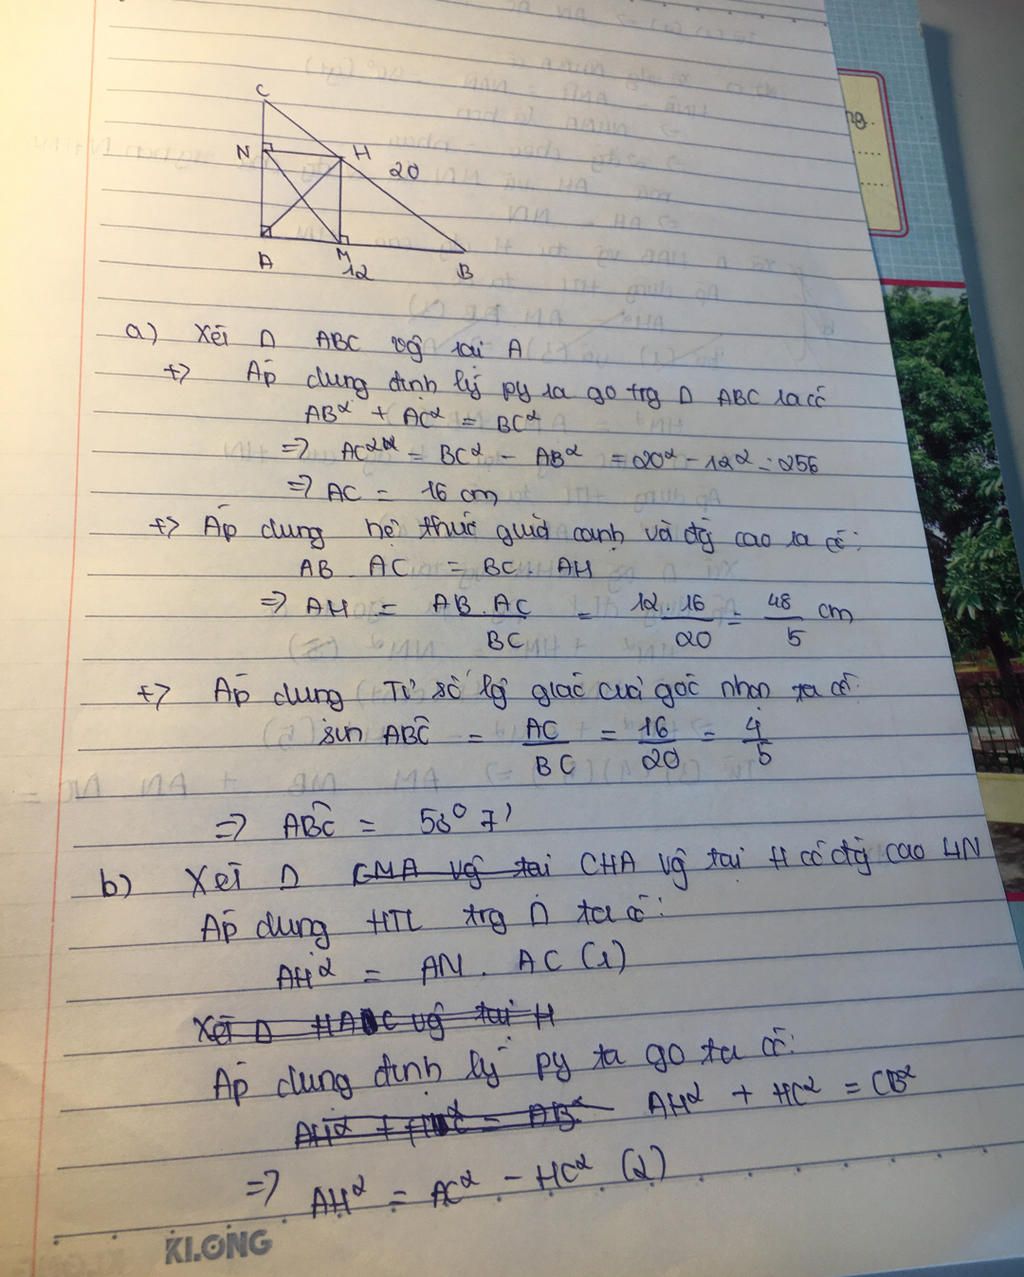 C
N H
20
A M B
12
a) Xét Δ ABC vg tại A
+> Áp dụng định lý py ta go trg Δ ABC ta có
AB² + AC² = BC²
=> AC² = BC² - AB² = 20² - 12² = 256
=> AC = 16 cm
+> Áp dụng hệ thức giữa cạnh và đg cao ta có:
AB . AC = BC . AH
=> AH = AB.AC / BC = 12.16 / 20 = 48 / 5 cm
+> Áp dụng Tỉ số lg giác của góc nhọn ta có:
sin ABC = AC / BC = 16 / 20 = 4 / 5
=> ABC = 53° 7'
b) Xét Δ CMA vg tại CHA vg tại H có đg cao HN
Áp dụng HTL trg Δ ta có:
AH² = AN . AC (1)
Xét Δ HAC vg tại H
Áp dụng định lý py ta go ta có:
AH² + HC² = AB² AH² + HC² = CB²
=> AH² = AC² - HC² (2)
KLONG
ng.